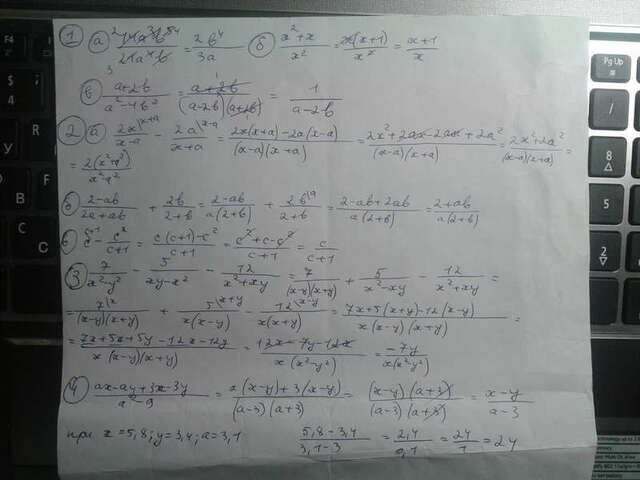 1 а) 14a³b⁵/21a⁴b = 2b⁴/3a б) x²+x/x² = x(x+1)/x² = x+1/x
в) a+2b/a²-4b² = a+2b/(a-2b)(a+2b) = 1/a-2b
2 а) 2x\x+a/x-a - 2a\x-a/x+a = 2x(x+a)-2a(x-a)/(x-a)(x+a) = 2x²+2ax-2ax+2a²/(x-a)(x+a) = 2x²+2a²/(x-a)(x+a) =
= 2(x²+a²)/x²-a²
б 2-ab/2a+ab + 2b/2+b = 2-ab/a(2+b) + 2b\a/2+b = 2-ab+2ab/a(2+b) = 2+ab/a(2+b)
в c\c+1 - c²/c+1 = c(c+1)-c²/c+1 = c²+c-c²/c+1 = c/c+1
3 7/x²-y² - 5/xy-x² - 12/x²+xy = 7/(x-y)(x+y) + 5/x²-xy - 12/x²+xy =
= 7\x/(x-y)(x+y) + 5\x+y/x(x-y) - 12\x-y/x(x+y) = 7x+5(x+y)-12(x-y)/x(x-y)(x+y) =
= 7x+5x+5y-12x-12y/x(x-y)(x+y) = 12x-7y-12x/x(x²-y²) = -7y/x(x²-y²)
4 ax-ay+3x-3y/a²-9 = a(x-y)+3(x-y)/(a-3)(a+3) = (x-y)(a+3)/(a-3)(a+3) = x-y/a-3
при x=5,8; y=3,4; a=3,1 5,8-3,4/3,1-3 = 2,4/0,1 = 24/1 = 24